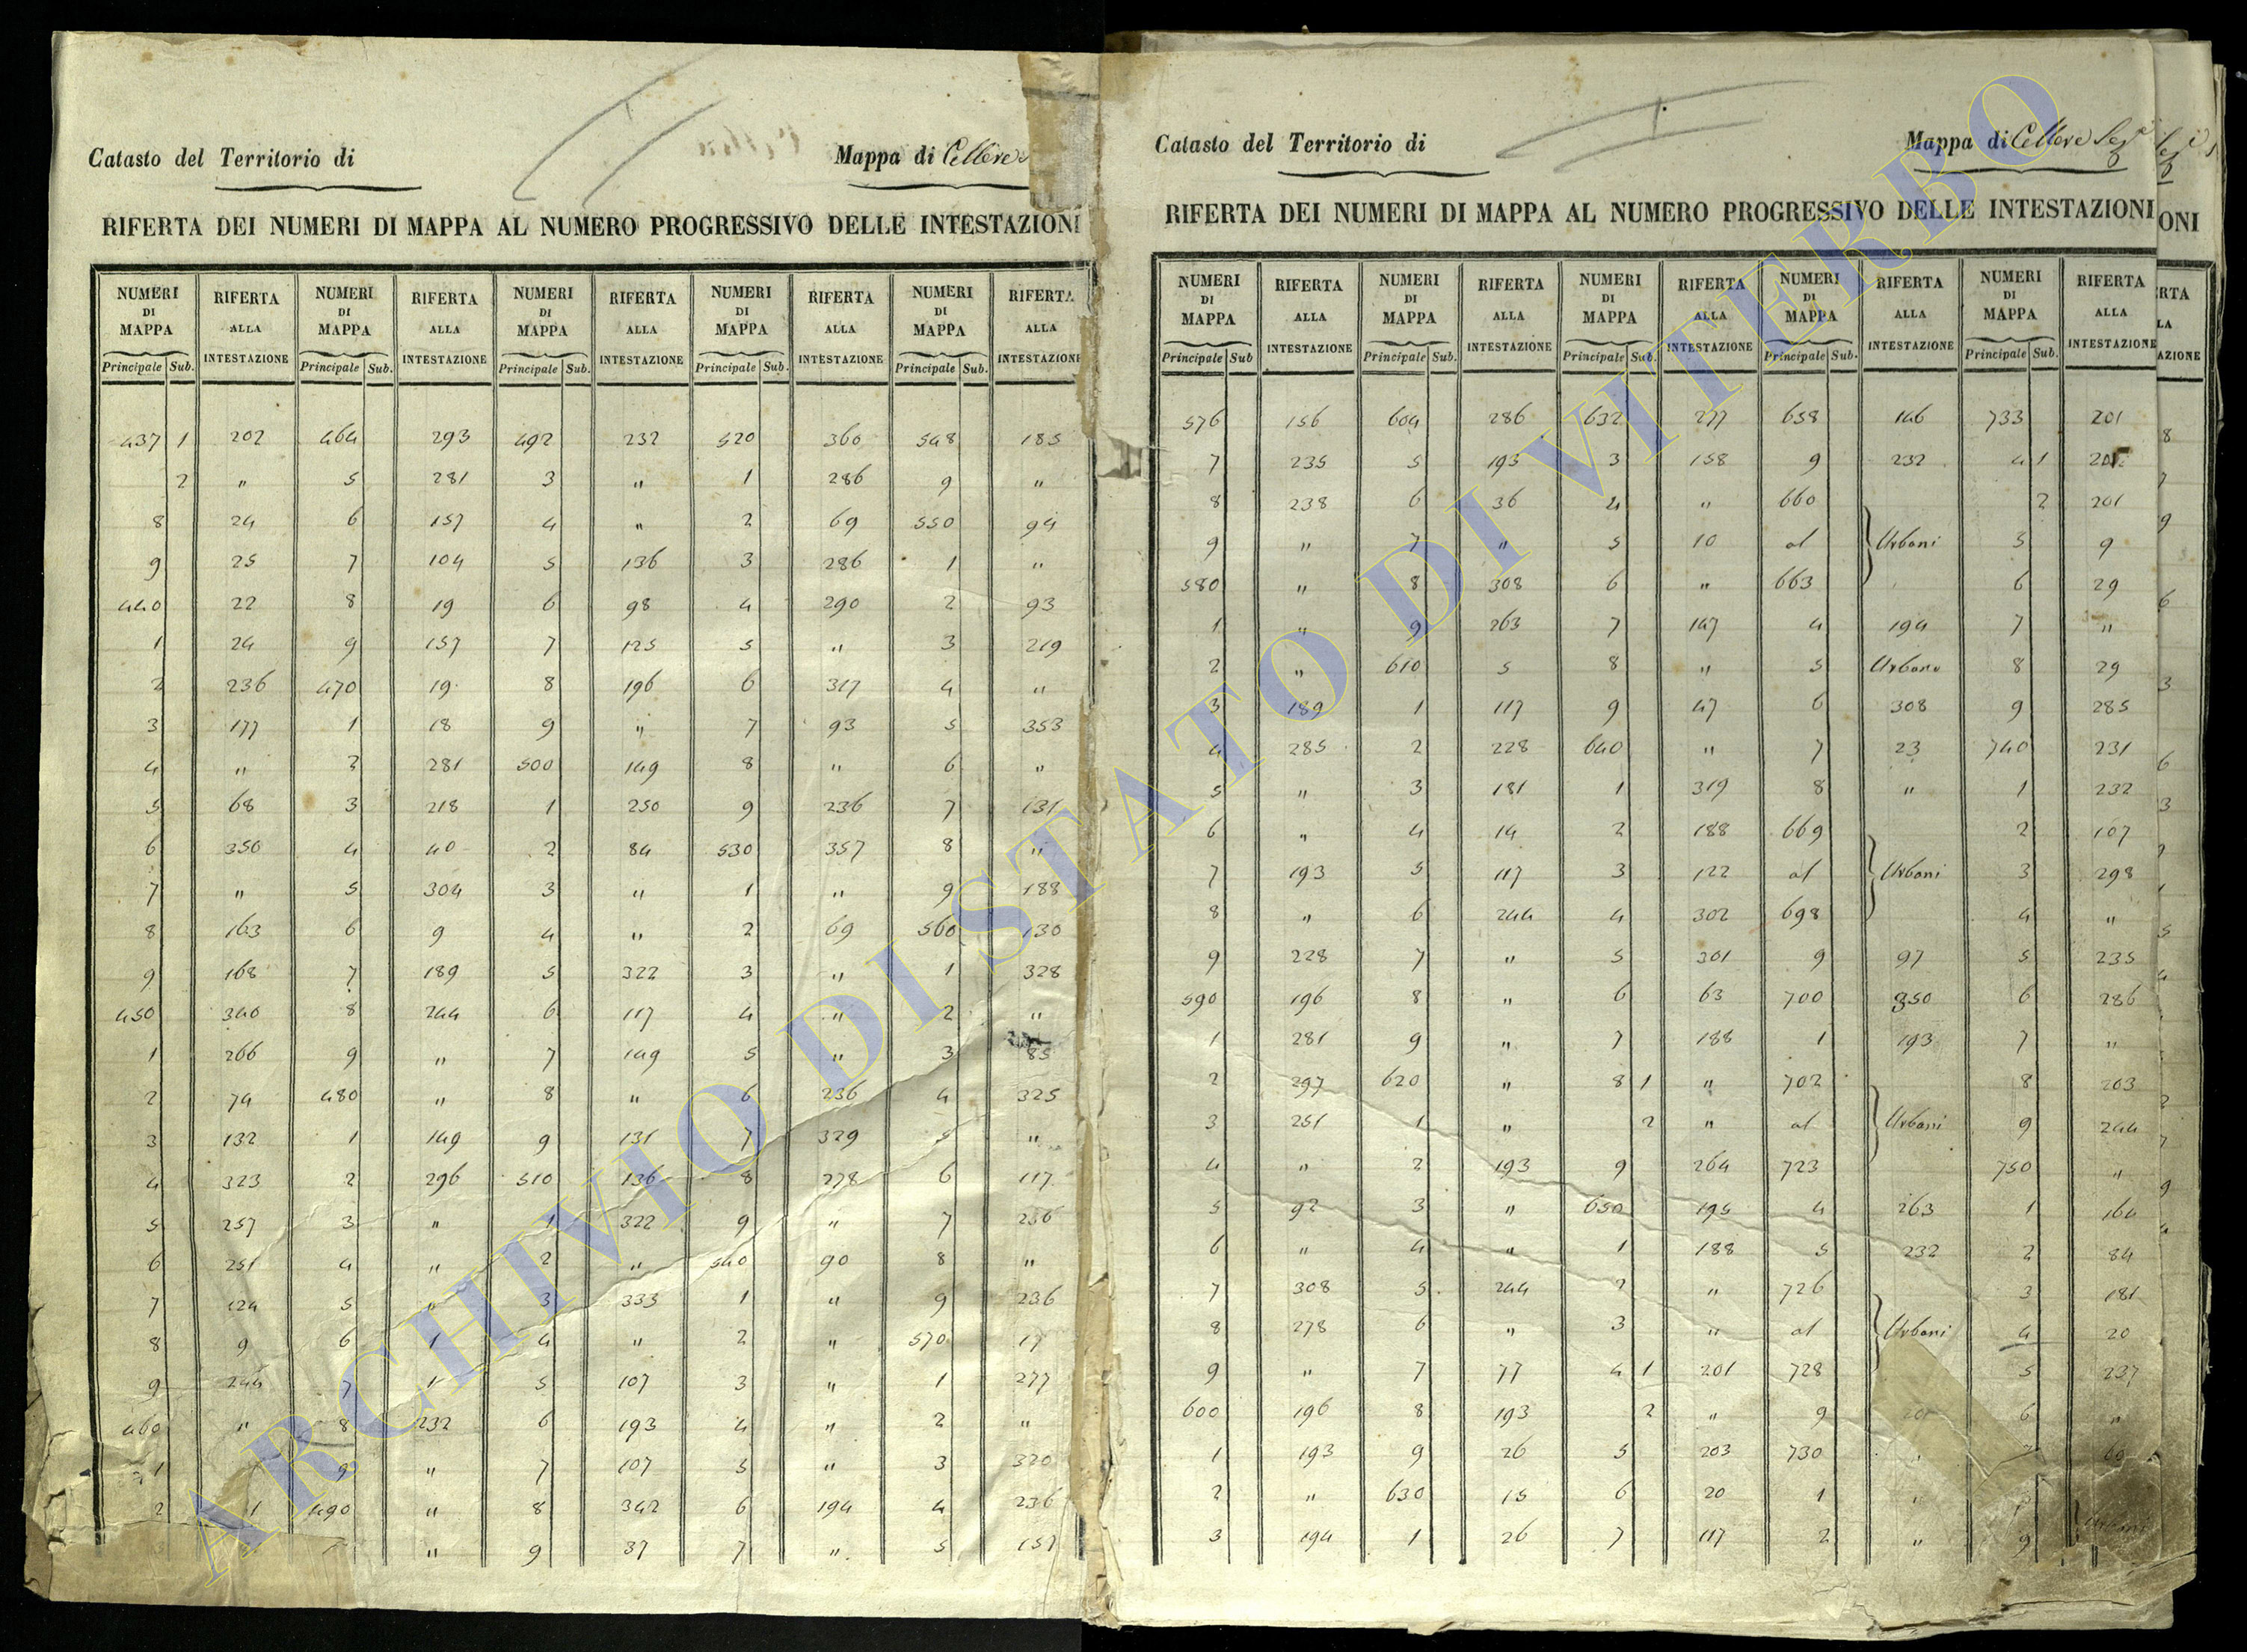 Catasto del Territorio di
Mappa di Cellere
RIFERTA DEI NUMERI DI MAPPA AL NUMERO PROGRESSIVO DELLE INTESTAZIONI
NUMERI DI MAPPA RIFERTA ALLA INTESTAZIONE NUMERI DI MAPPA RIFERTA ALLA INTESTAZIONE NUMERI DI MAPPA RIFERTA ALLA INTESTAZIONE NUMERI DI MAPPA RIFERTA ALLA INTESTAZIONE NUMERI DI MAPPA RIFERTA ALLA INTESTAZIONE
Principale Sub. Principale Sub. Principale Sub. Principale Sub. Principale Sub.
437 1 202 464 293 492 232 520 360 548 185
2 " 5 281 3 " 1 286 9 "
8 24 6 157 4 " 2 69 550 94
9 25 7 104 5 136 3 286 1 "
440 22 8 19 6 98 4 290 2 93
1 24 9 157 7 125 5 " 3 219
2 236 470 19 8 196 6 317 4 "
3 177 1 18 9 " 7 93 5 353
4 " 2 281 500 149 8 " 6 "
5 68 3 218 1 250 9 236 7 131
6 350 4 40 2 84 530 357 8 "
7 " 5 304 3 " 1 " 9 188
8 163 6 9 4 " 2 69 560 130
9 168 7 189 5 322 3 " 1 328
450 340 8 244 6 117 4 " 2 "
1 266 9 " 7 149 5 " 3 85
2 74 480 " 8 " 6 236 4 325
3 132 1 149 9 131 7 329 5 "
4 323 2 296 510 136 8 278 6 117
5 257 3 " 1 322 9 " 7 236
6 251 4 " 2 " 540 90 8 "
7 124 5 " 3 333 1 " 9 236
8 9 6 1 4 " 2 " 570 17
9 244 7 1 5 107 3 " 1 277
460 " 8 232 6 193 4 " 2 "
1 9 " 7 107 5 " 3 320
2 1 490 " 8 342 6 194 4 236
" 9 37 7 " 5 157
Catasto del Territorio di
Mappa di Cellere Sez
RIFERTA DEI NUMERI DI MAPPA AL NUMERO PROGRESSIVO DELLE INTESTAZIONI
NUMERI DI MAPPA RIFERTA ALLA INTESTAZIONE NUMERI DI MAPPA RIFERTA ALLA INTESTAZIONE NUMERI DI MAPPA RIFERTA ALLA INTESTAZIONE NUMERI DI MAPPA RIFERTA ALLA INTESTAZIONE NUMERI DI MAPPA RIFERTA ALLA INTESTAZIONE
Principale Sub Principale Sub. Principale Sub. Principale Sub. Principale Sub.
576 156 604 286 632 277 658 146 733 201
7 235 5 193 3 158 9 232 4 1
8 238 6 36 4 " 660 2 201
9 " 7 " 5 10 al Urbani 5 9
580 " 8 308 6 " 663 6 29
1 " 9 263 7 147 4 194 7 "
2 " 610 5 8 " 5 Urbano 8 29
3 189 1 117 9 47 6 308 9 285
4 285 2 228 640 " 7 23 740 231
5 " 3 181 1 319 8 " 1 232
6 " 4 14 2 188 669 2 107
7 193 5 117 3 122 al Urbani 3 298
8 " 6 244 4 302 698 4 "
9 228 7 " 5 301 9 97 5 235
590 196 8 " 6 63 700 350 6 286
1 281 9 " 7 188 1 193 7 "
2 297 620 " 8 1 " 702 8 203
3 251 1 " 2 " al Urbani 9 244
4 " 2 193 9 264 723 750 "
5 92 3 " 650 195 4 263 1 164
6 " 4 " 1 188 5 232 2 84
7 308 5 244 2 " 726 3 181
8 278 6 " 3 " al Urbani 4 20
9 " 7 77 4 1 201 728 5 237
600 196 8 193 2 " 9 201 6 "
1 193 9 26 5 203 730 " 7 69
2 " 630 15 6 20 1 "
3 194 1 26 7 117 2 " 9 Urbani
ARCHIVIO DI STATO DI VITERBO